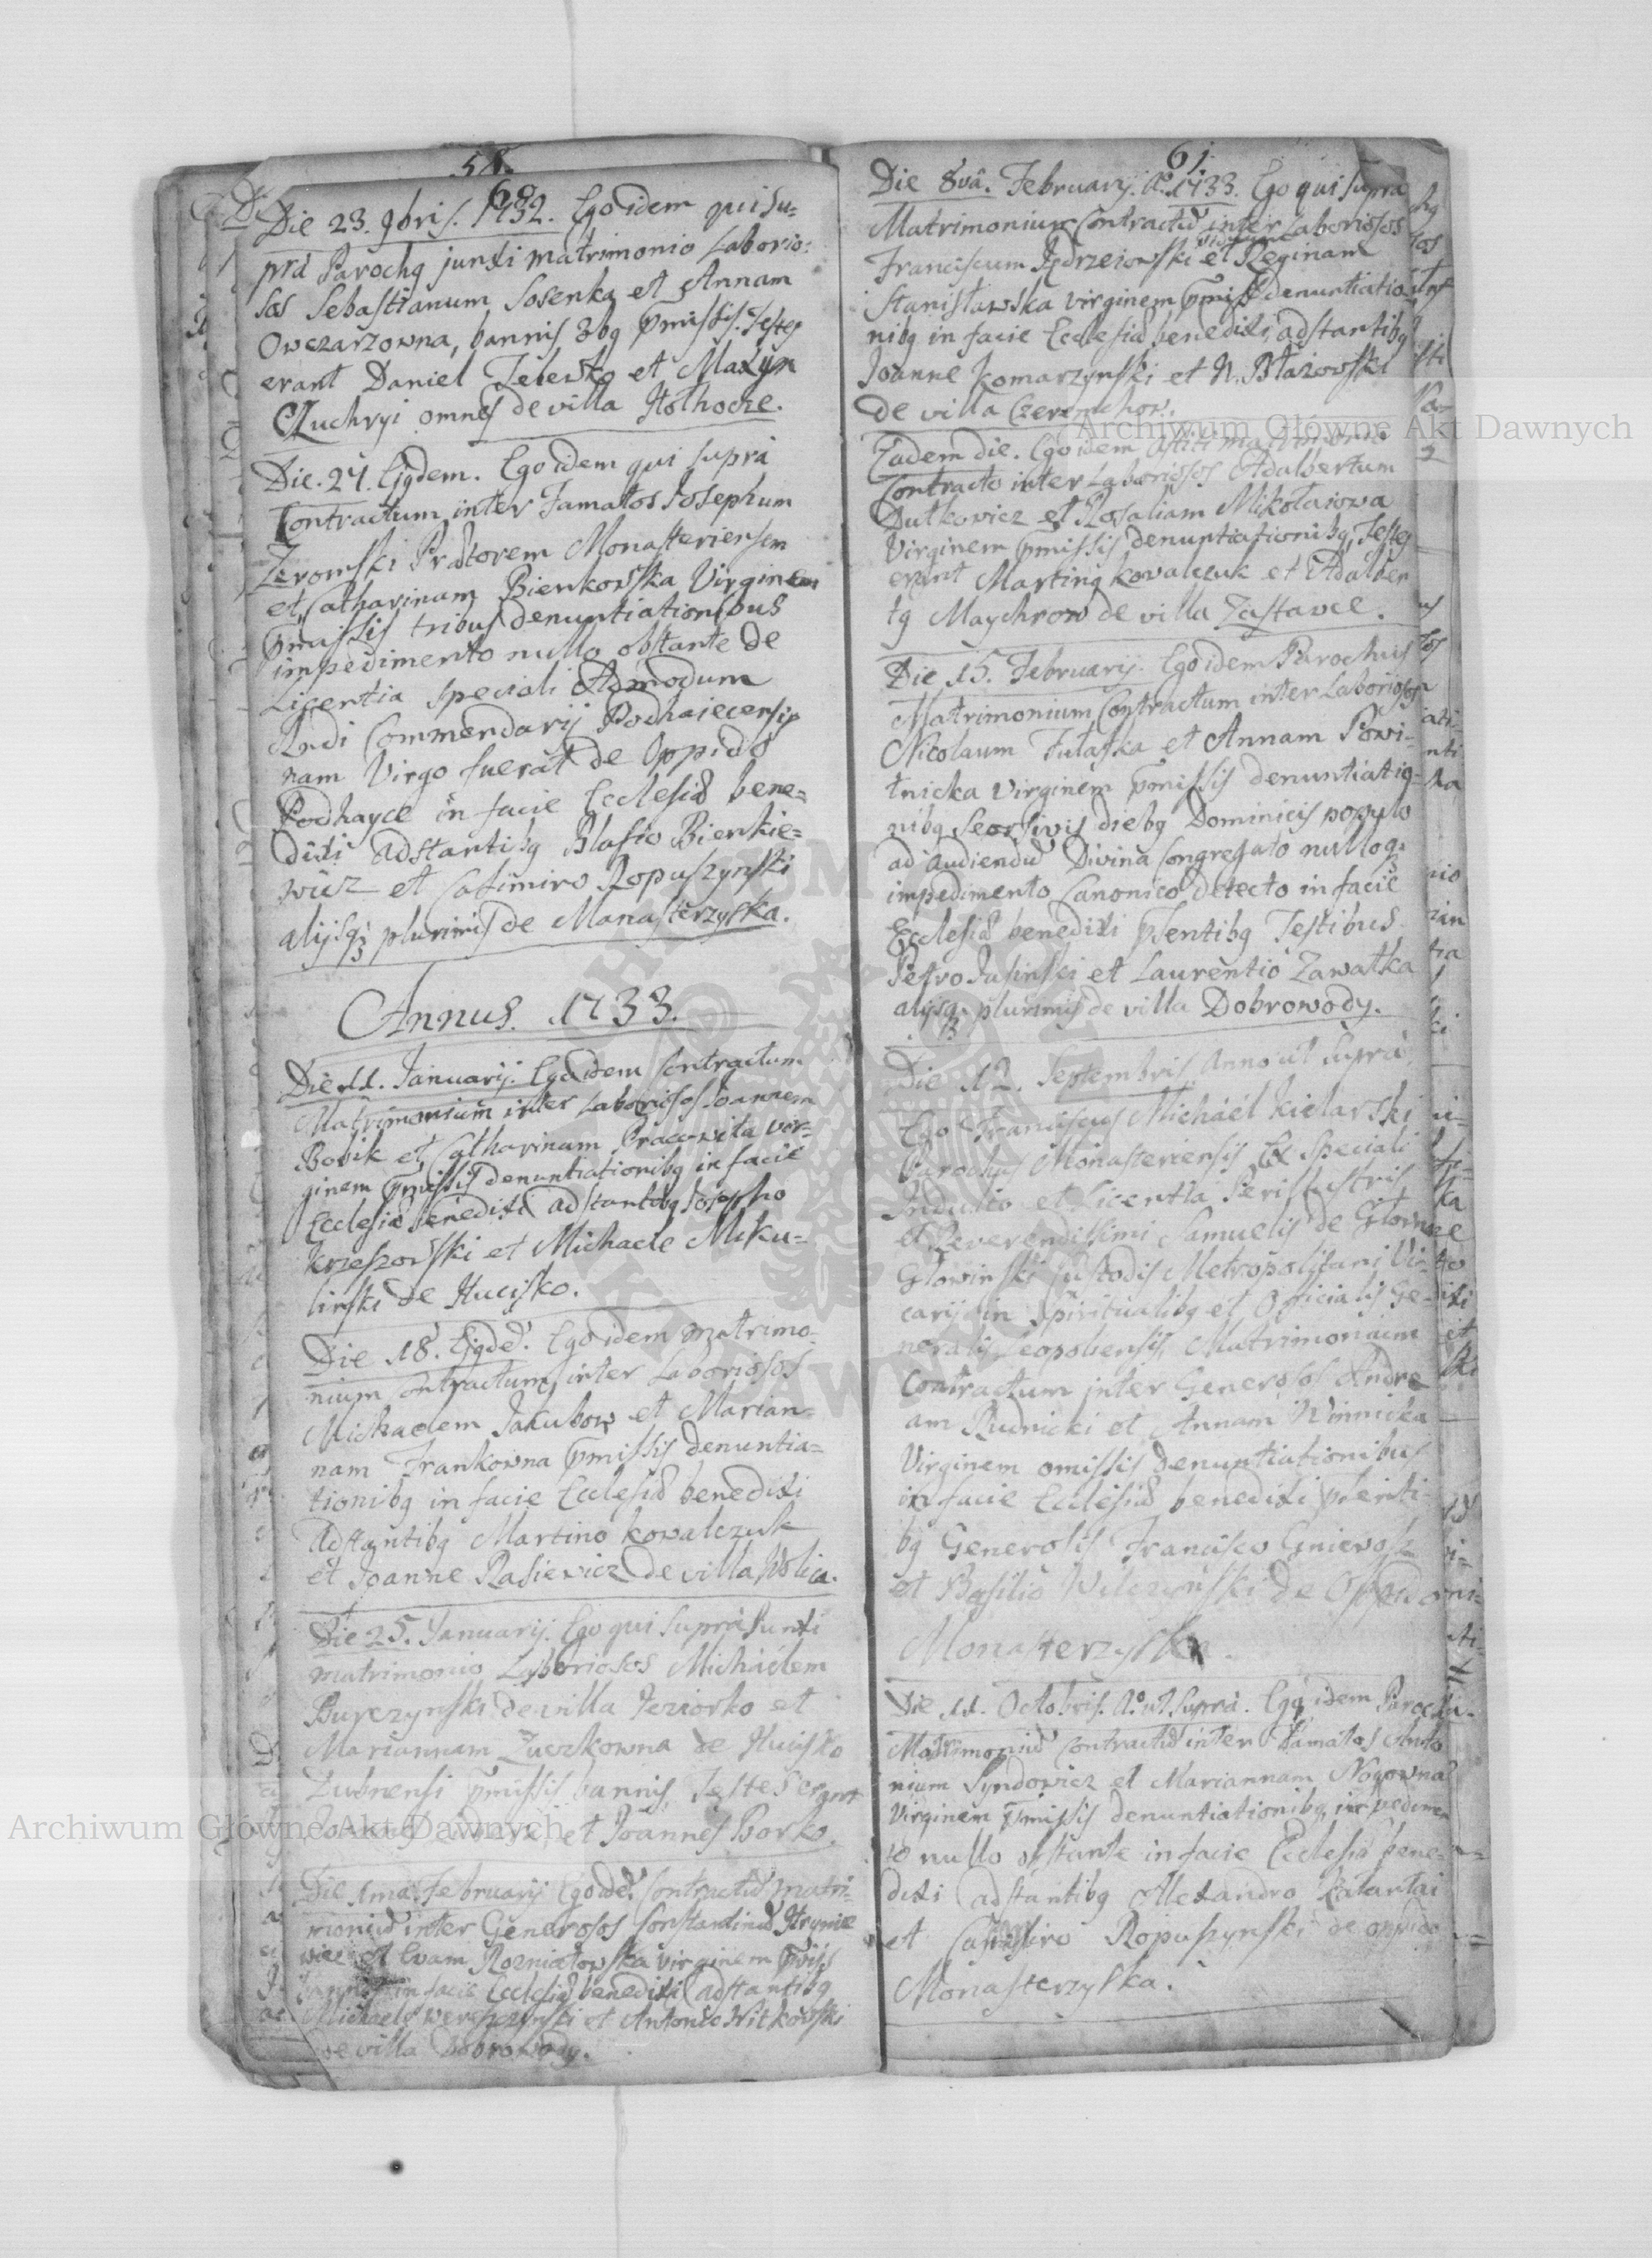 58.
60
Die 23. 9bris. 1732. Ego idem qui su=
pra Parochg junxi matrimonio Laborio=
sos Sebastianum Sosenka et Annam
Owczarzowna, bannis 3bg pmissis. Testes
erant Daniel et Maxym
omnes de villa Hołhocze.
Die. 24. Ejgdem. Ego idem qui supra
Contractum inter Famatos Josephum
Zeromski Prætorem Monasteriensem
et Catharinam Bienkowska Virginem
pmissis tribus denuntiationibus
impedimento nullo obstante de
Licentia speciali Admodum
Rndi Commendarij Podhaiecensis
nam Virgo fuerat de Oppido
Podhayce in facie Ecclesiæ bene=
dixi adstantibg Blasio Bienkie=
wicz et Casimiro Ropuszynski
alijsqz plurimis de Monasterzyska.
Annus. 1733.
Die 11. Januarij. Ego idem Contractum
Matrimonium inter Laboriosos Joannem
Bobik et Catharinam Pracowita vir=
ginem pmissis denuntiationibg in facie
Ecclesiæ benedixi adstantibg Josepho
Krzeszowski et Michaele Miku=
linski de Hucisko.
Die 18. Ejgde. Ego idem matrimo=
nium contractum inter Laboriosos
Michaelem Jakubow et Marian=
nam Frankowna pmissis denuntia=
tionibg in facie Ecclesiæ benedixi
Adstantibg Martino Kowalczuk
et Joanne Rasiewicz de villa Wolica.
Die 25. Januarij. Ego qui supra Junxi
matrimonio Laboriosos Michaelem
Burczynski de villa Jeziorko et
Mariannam Zuczkowna de Hucisko
Zubrensi pmissis bannis Testes erant
et Joannes Borko.
Die 1ma. Februarij Ego idē. Contractū matri=
moniū inter Generosos Constantinū Hrynie
wicz et Evam Rozniatowska virginem pmiss
in facie Ecclesiæ benedixi adstantibg
Michaele Wereszczynski et Antonio Witkowski
de villa Dobrowody.
61.
Die 8va. Februarij. Ao. 1733. Ego qui supra
Matrimonium Contractū inter Laboriosos
viduum
Franciscum Jędrzeiowski et Reginam
Stanisławska virginem pmiss denuntiatio
nibg in facie Ecclesiæ benedixi, adstantibg
Joanne Komarzynski et N. Błazowski
de villa Czeremchow.
Eadem die. Ego idem astiti matrimonio
Contracto inter Laboriosos Adalbertum
Dutkowicz et Rosaliam Mikołaiowa
Virginem pmissis denuntiationibg, Testes
erant Marting Kowalczuk et Adalber
tg Maychrow de villa Zastawce.
Die 15. Februarij. Ego idem Parochus
Matrimonium Contractum inter Laboriosos
Nicolaum Fulaska et Annam Powi-
tnicka Virginem pmissis denuntiatio-
nibg Seorsivis diebg Dominicis populo
ad audiendū Divina Congregato nulloqz
impedimento Canonico detecto in facie
Ecclesiæ benedixi psentibg Testibus
Petro Jusinski et Laurentio Zawałka
alijsqz plurimis de villa Dobrowody.
Die 12. Septembris Anno ut supra
Ego Franciscus Michael Kielarski
Parochus Monasteriensis Ex Speciali
Indulto et Licentia Perillustris
et Reverendissimi Samuelis de Głowno
Głowinski Custodis Metropolitani Vi-
carij in Spiritualibg et Officialis Ge-
neralis Leopoliensis Matrimonium
Contractum inter Generosos Andre
am Rudnicki et Annam Winnicka
Virginem omissis denuntiationibus
in facie Ecclesiæ benedixi psenti-
bg Generosis Francisco Gniewosz
et Basilio Wilczynski de Oppido
Monasterzyska.
Die 11. Octobris. Ao. ut supra. Ego idem Parochus
Matrimoniū contractū inter Famatos Anto
nium Syndowicz et Mariannam Nogowna
Virginem pmissis denuntiationibg, impedimen
to nullo obstante in facie Ecclesiæ bene-
dixi adstantibg Alexandro Katartai
et Casimiro Ropuszynski de oppido
Monasterzyska.
Archiwum Główne Akt Dawnych
Archiwum Główne Akt Dawnych